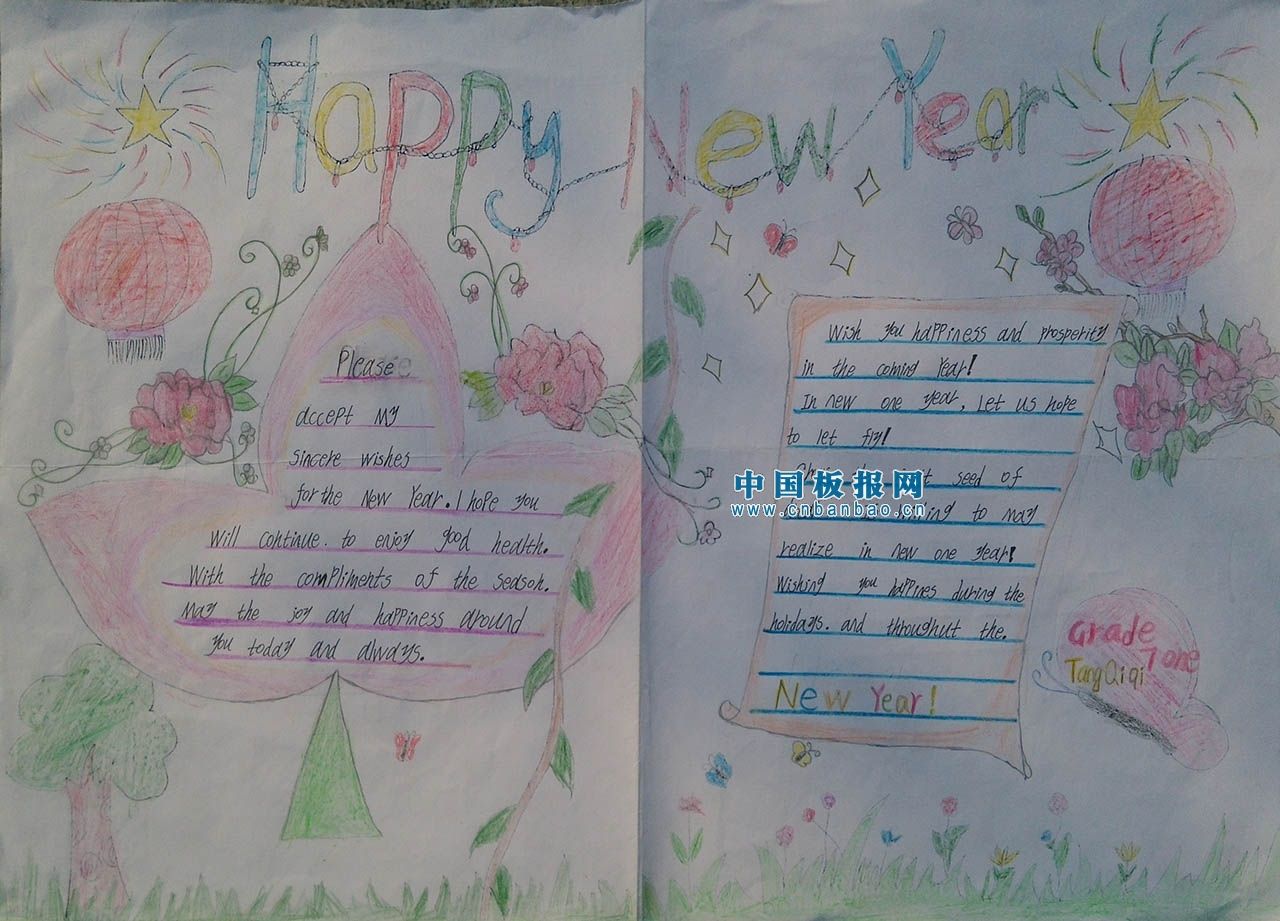 Happy New Year
Please
accept my
sincere wishes
for the New Year. I hope you
will continue. to enjoy good health.
With the compliments of the season.
May the joy and happiness around
you today and always.
Wish you happiness and prosperity
in the coming Year!
In new one year, Let us hope
to let fly!
seed of
to may
realize in new one year!
Wishing you happines during the
holidays. and throughut the.
New Year!
中国板报网
www.cnbanbao.cn
Grade
7 one
Tang Qi qi